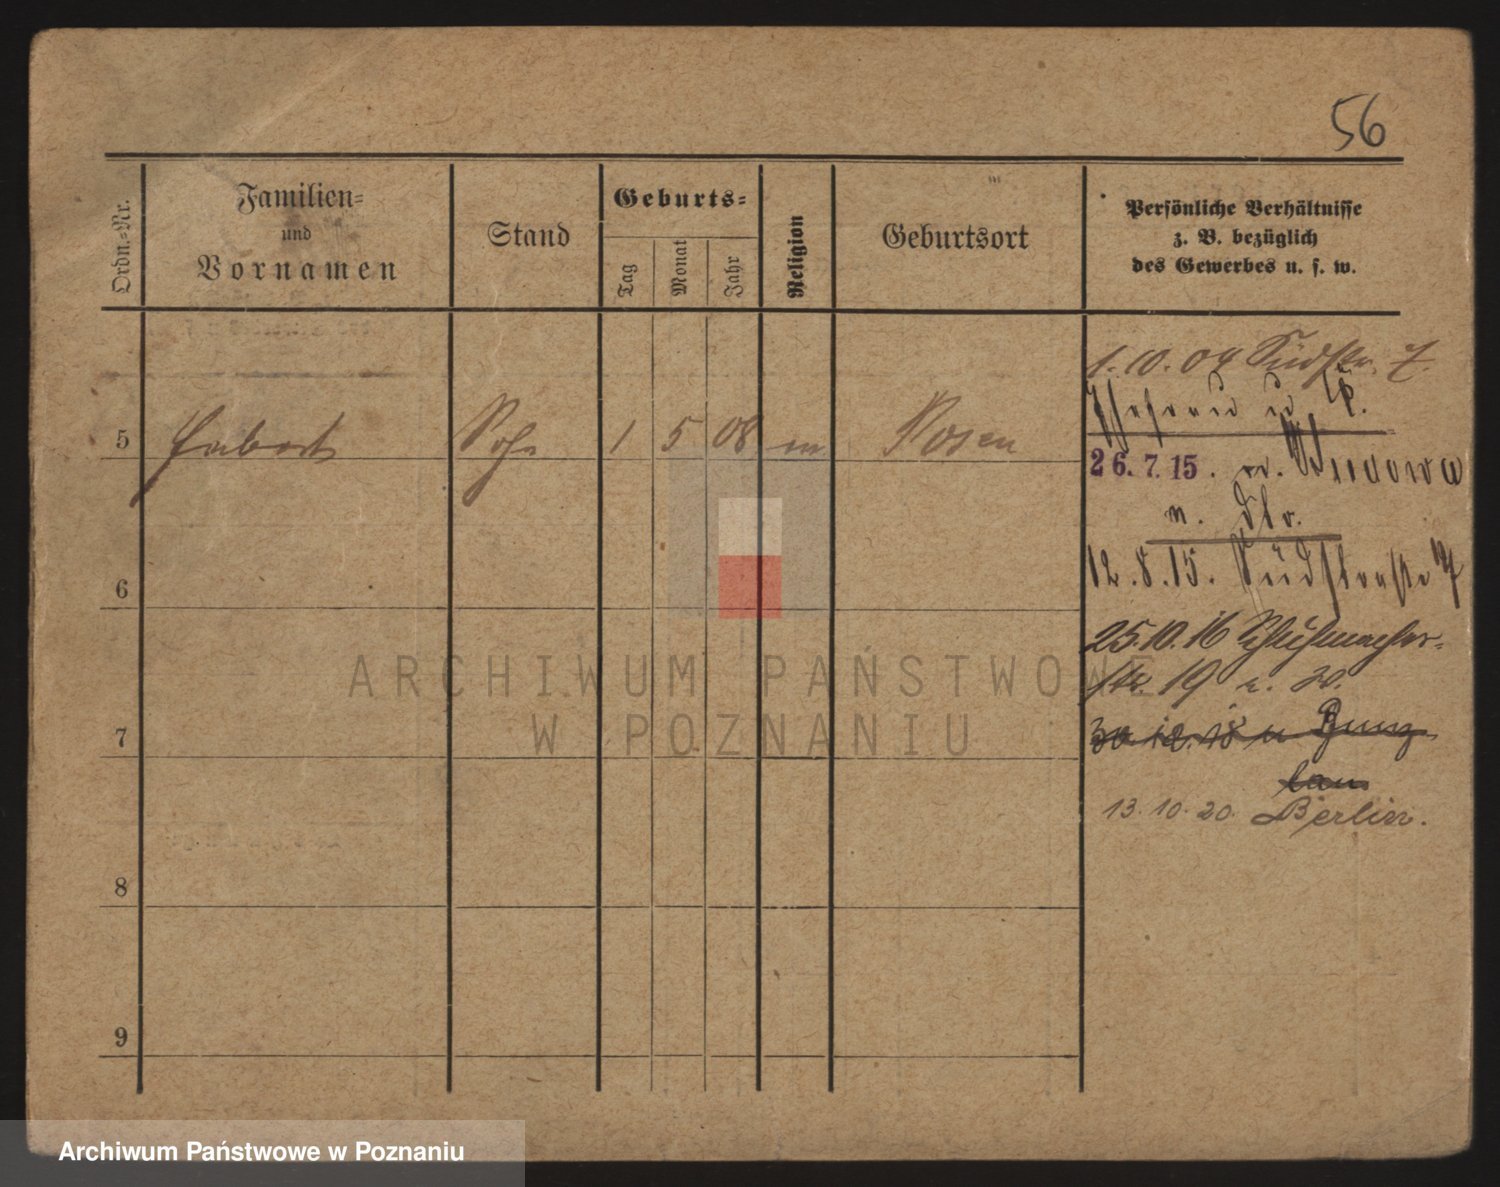 56
Ordn.-Nr.
Familien-
und
Vornamen
Stand
Geburts-
Tag
Monat
Jahr
Religion
Geburtsort
Persönliche Verhältnisse
z. B. bezüglich
des Gewerbes u. s. w.
1.10.04 Südstr. 7.
Ehefrau u. K.
5 Hubert Sohn 1 5 08 m Posen
26.7.15.
n. dlr.
12.8.15. Südstraße 7
25.10.16 Schuhmacher-
str. 19 u. 20.
30.12.18 n Bunz
lau
13.10.20. Berlin.
6
7
8
9
ARCHIWUM PAŃSTWOWE
W POZNANIU
Archiwum Państwowe w Poznaniu